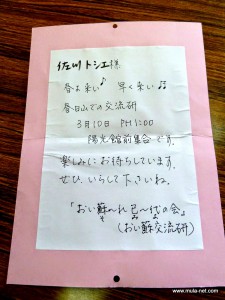 佐川トシエ様
春よ来い♪ 早く来い♫
春日山での交流研
3月10日 PM1:00
陽光館前集合です。
楽しみにお待ちしています。
ぜひ、いらして下さいね。
「おい蘇〜れ 〜代の会」
(おい蘇交流研)
www.mula-net.com